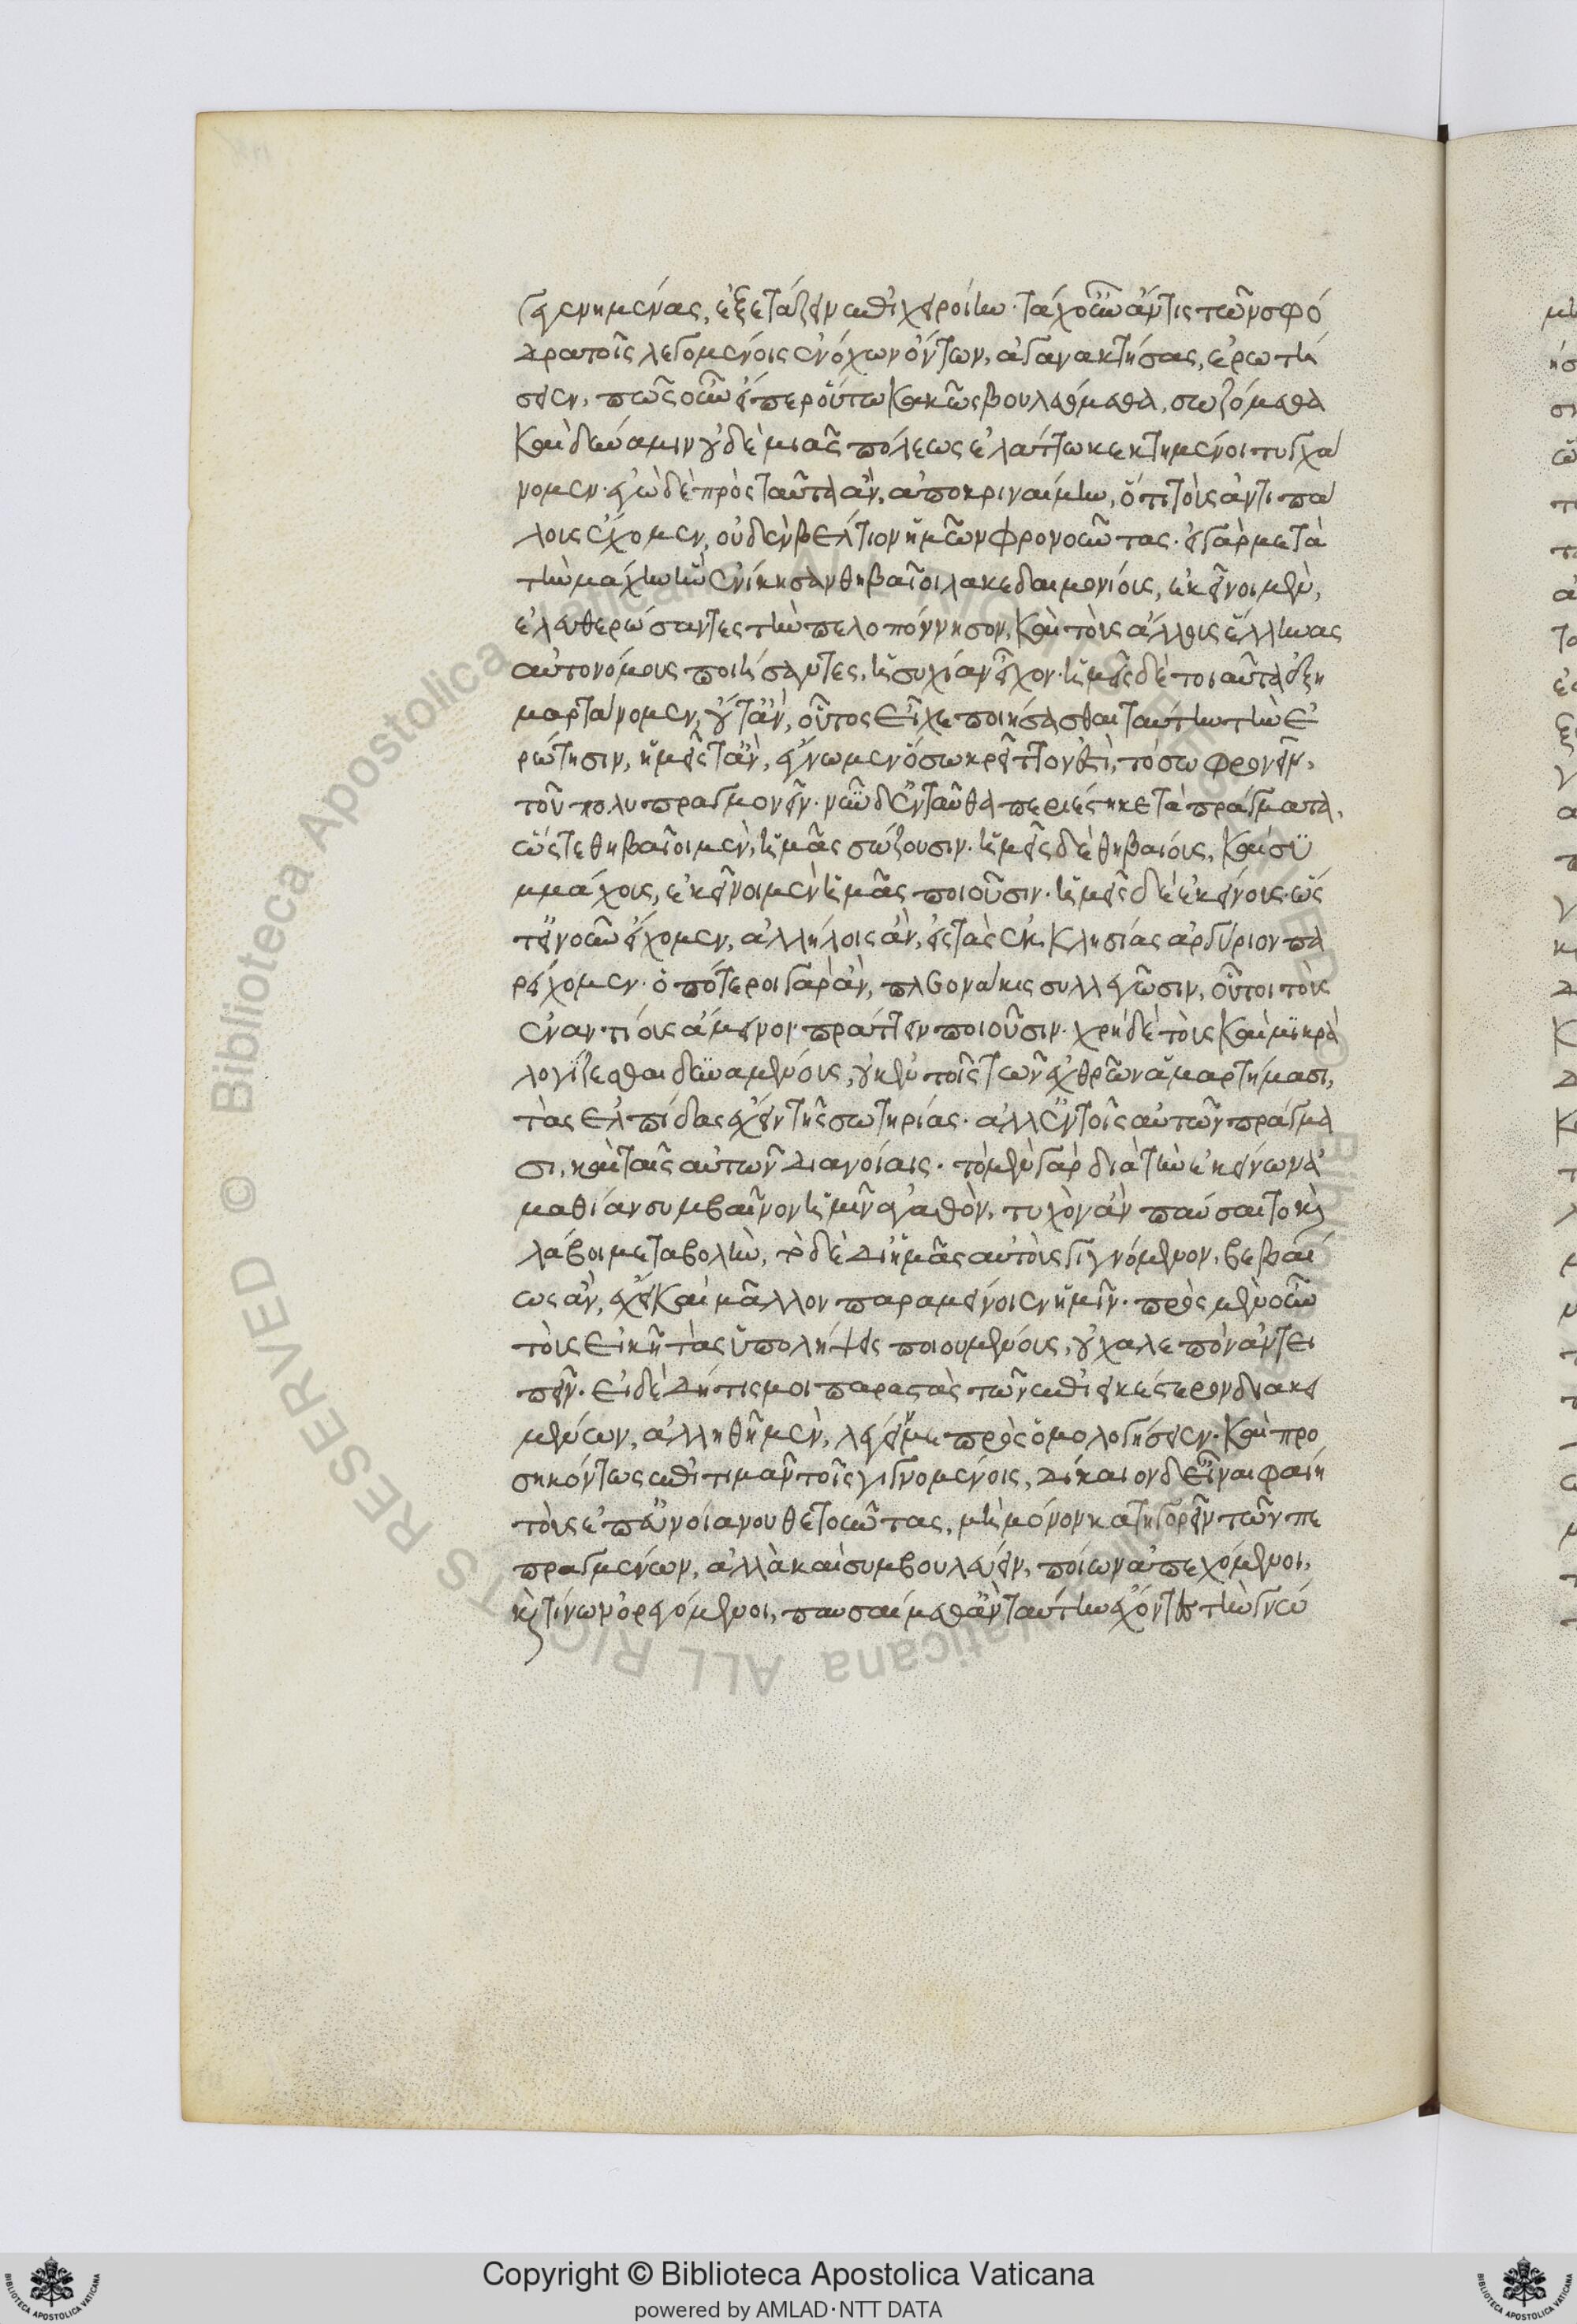 γενημένας, ἐξετάζειν ἐπιχειροίην. τάχ' οὖν ἄν τις τῶν σφό
δρα τοῖς λεγομένοις ἐνόχων ὄντων, ἀγανακτήσας, ἐρωτή
σειεν, πῶς οὖν εἴπερ οὕτω κακῶς βουλευόμεθα, σωζόμεθα
καὶ δύναμιν οὐδεμιᾶς πόλεως ἐλάττω κεκτημένοι τυγχά
νομεν. ἐγὼ δὲ πρὸς ταῦτα ἂν, ἀποκριναίμην, ὅτι τοὺς ἀντιπά
λους ἔχομεν, οὐδὲν βέλτιον ἡμῶν φρονοῦντας. εἰ γὰρ μετὰ
τὴν μάχην ἣν ἐνίκησαν θηβαῖοι λακεδαιμονίους, ἐκεῖνοι μὲν,
ἐλευθερώσαντες τὴν πελοπόννησον, καὶ τοὺς ἄλλους ἕλληνας
αὐτονόμους ποιήσαντες, ἡσυχίαν εἶχον. ἡμεῖς δὲ τοιαῦτα ἐξη
μαρτάνομεν, οὔτ' ἂν, οὗτος εἶχε ποιήσασθαι ταύτην τὴν ἐ
ρώτησιν, ἡμεῖς τ' ἂν, ἔγνωμεν ὅσω κρεῖττόν ἐστι, τὸ σωφρονεῖν,
τοῦ πολυπραγμονεῖν. νῦν δ' ἐνταῦθα περιέστηκε τὰ πράγματα,
ὥστε θηβαῖοι μὲν, ἡμᾶς σώζουσιν. ἡμεῖς δὲ θηβαίους, καὶ συ
μμάχους, ἐκεῖνοι μὲν ἡμᾶς ποιοῦσιν. ἡμεῖς δὲ ἐκείνους. ὥς
τ' εἰ νοῦν εἴχομεν, ἀλλήλοις ἂν, εἰς τὰς ἐκκλησίας ἀργύριον πα
ρείχομεν. ὁπότεροι γὰρ ἂν, πλεονάκις συλλεγῶσιν, οὗτοι τοὺς
ἐναντίους ἄμεινον πράττειν ποιοῦσιν. χρὴ δὲ τοὺς καὶ μικρὰ
λογίζεσθαι δυναμένους, οὐκ ἐν τοῖς τῶν ἐχθρῶν ἁμαρτήμασι,
τὰς ἐλπίδας ἔχειν τῆς σωτηρίας. ἀλλ' ἐν τοῖς αὑτῶν πράγμα
σι, καὶ ταῖς αὑτῶν διανοίαις. τὸ μὲν γὰρ διὰ τὴν ἐκείνων ἀ
μαθίαν συμβαῖνον ἡμῖν ἀγαθὸν, τυχὸν ἂν παύσαιτο καὶ
λάβοι μεταβολὴν, τὸ δὲ δι' ἡμᾶς αὐτοὺς γιγνόμενον, βεβαί
ως ἂν, ἔχοι καὶ μᾶλλον παραμένοιεν ἡμῖν. πρὸς μὲν οὖν
τοὺς εἰκῆ τὰς ὑπολήψεις ποιουμένους, οὐ χαλεπὸν ἀντει
πεῖν. εἰ δὲ δή τις μοι παραστὰς τῶν ἐπιεικέστερον διακει
μένων, ἀληθῆ μὲν, λέγειν με προσομολογήσειεν. καὶ προ
σηκόντως ἐπιτιμᾶν τοῖς γιγνομένοις, δίκαιον δ' εἶναι φαίη
τοὺς ἐπ' εὐνοία νουθετοῦντας, μὴ μόνον κατηγορεῖν τῶν πε
πραγμένων, ἀλλὰ καὶ συμβουλεύειν, ποίων ἀπεχόμενοι,
καὶ τίνων ὀρεγόμενοι, παυσαίμεθ' ἂν ταύτην ἔχοντες τὴν γνώ
Copyright © Biblioteca Apostolica Vaticana
powered by AMLAD·NTT DATA